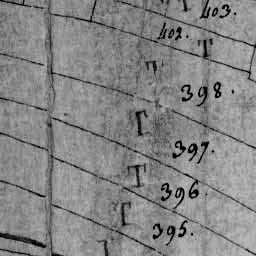 T 403.
402. T
398.
T 397.
T 396.
T 395.